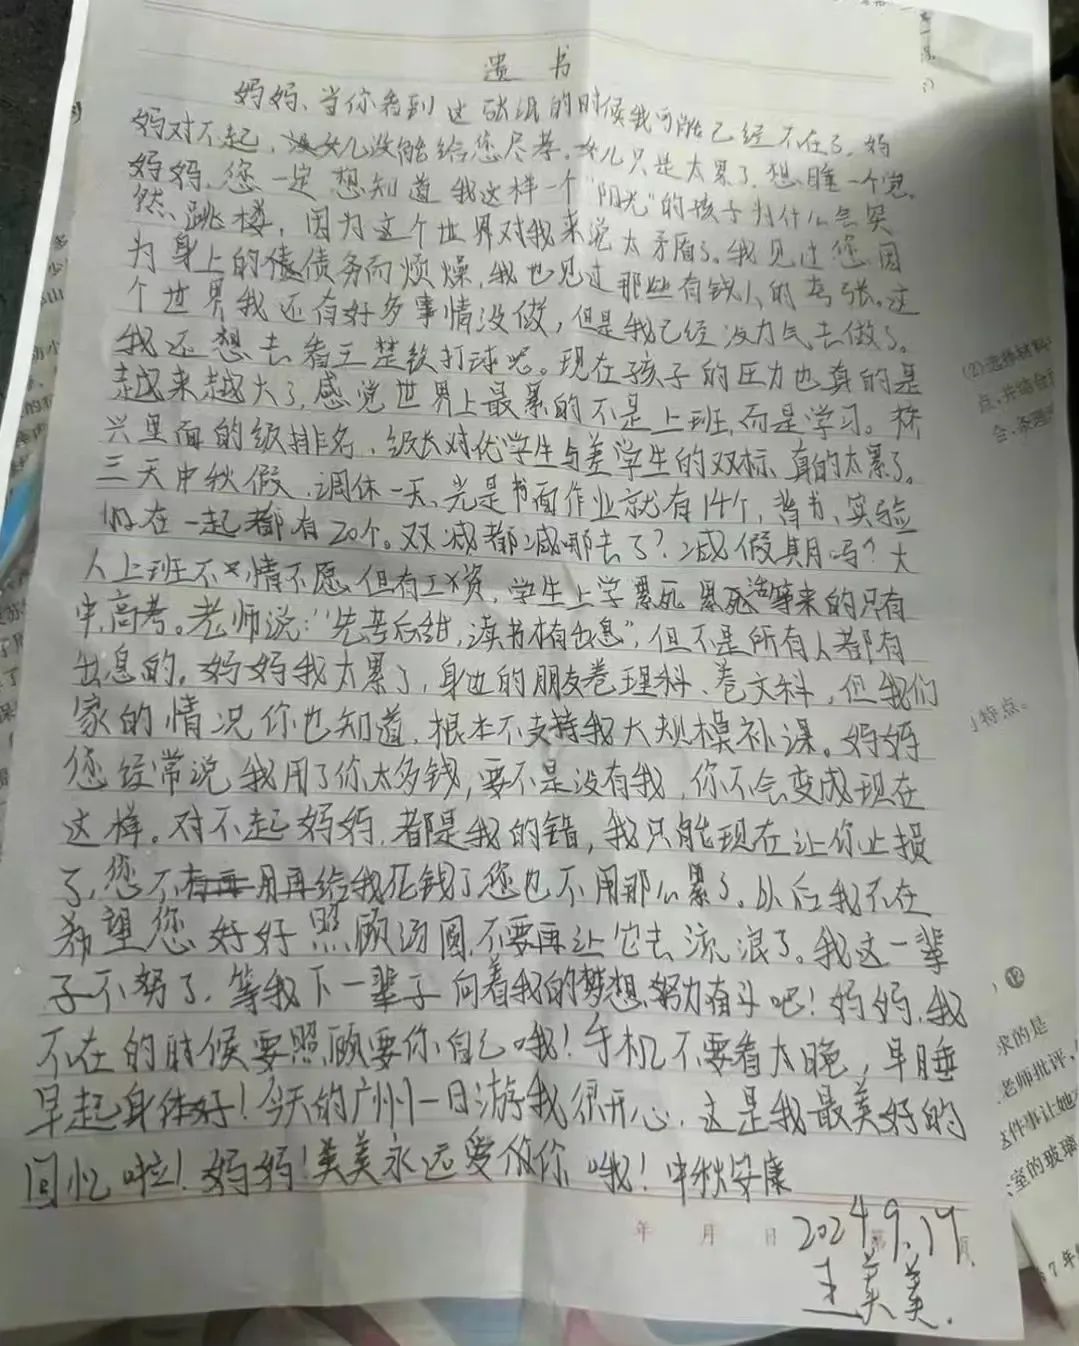 遗书
妈妈、当你看到这张纸的时候我可能已经不在了。妈
妈对不起，女儿没能给您尽孝。女儿只是太累了，想睡一个觉。
妈妈，您一定想知道我这样一个“阳光”的孩子为什么会突
然、跳楼，因为这个世界对我来说太矛盾了。我见过您因
为身上的债务而烦燥，我也见过那些有钱人的嚣张。这
个世界我还有好多事情没做，但是我已经没力气去做了。
我还想去看王楚钦打球呢。现在孩子的压力也真的是
越来越大了，感觉世界上最累的不是上班，而是学习。株
兴里面的级排名、级长对优学生与差学生的双标、真的太累了。
三天中秋假，调休一天、光是书面作业就有14个，背书、实验
加在一起都有20个。双减都减哪去了？减假期吗？大
人上班不情不愿，但有工资，学生上学累死累死等来的只有
中、高考。老师说：“先苦后甜，读书才有出息”，但不是所有人都有
出息的。妈妈我太累了，身边的朋友卷理科、卷文科，但我们
家的情况你也知道，根本不支持我大规模补课。妈妈
您经常说我用了你太多钱，要不是没有我，你不会变成现在
这样。对不起妈妈，都是我的错，我只能现在让你止损
了，您不用再给我花钱了您也不用那么累了。以后我不在
希望您好好照顾汤圆，不要再让它去流浪了。我这一辈
子不努了，等我下一辈子向着我的梦想努力奋斗吧！妈妈，我
不在的时候要照顾要你自己哦！手机不要看太晚，早睡
早起身体好！今天的广州一日游我很开心，这是我最美好的
回忆啦！妈妈！美美永远爱你 哦！中秋安康
年 月 日
2024.9.17
王美美.
(2)选择材料
点，并结合
会、条理
特点。
求的是
老师批评，
这件事让她
室的玻璃
7年